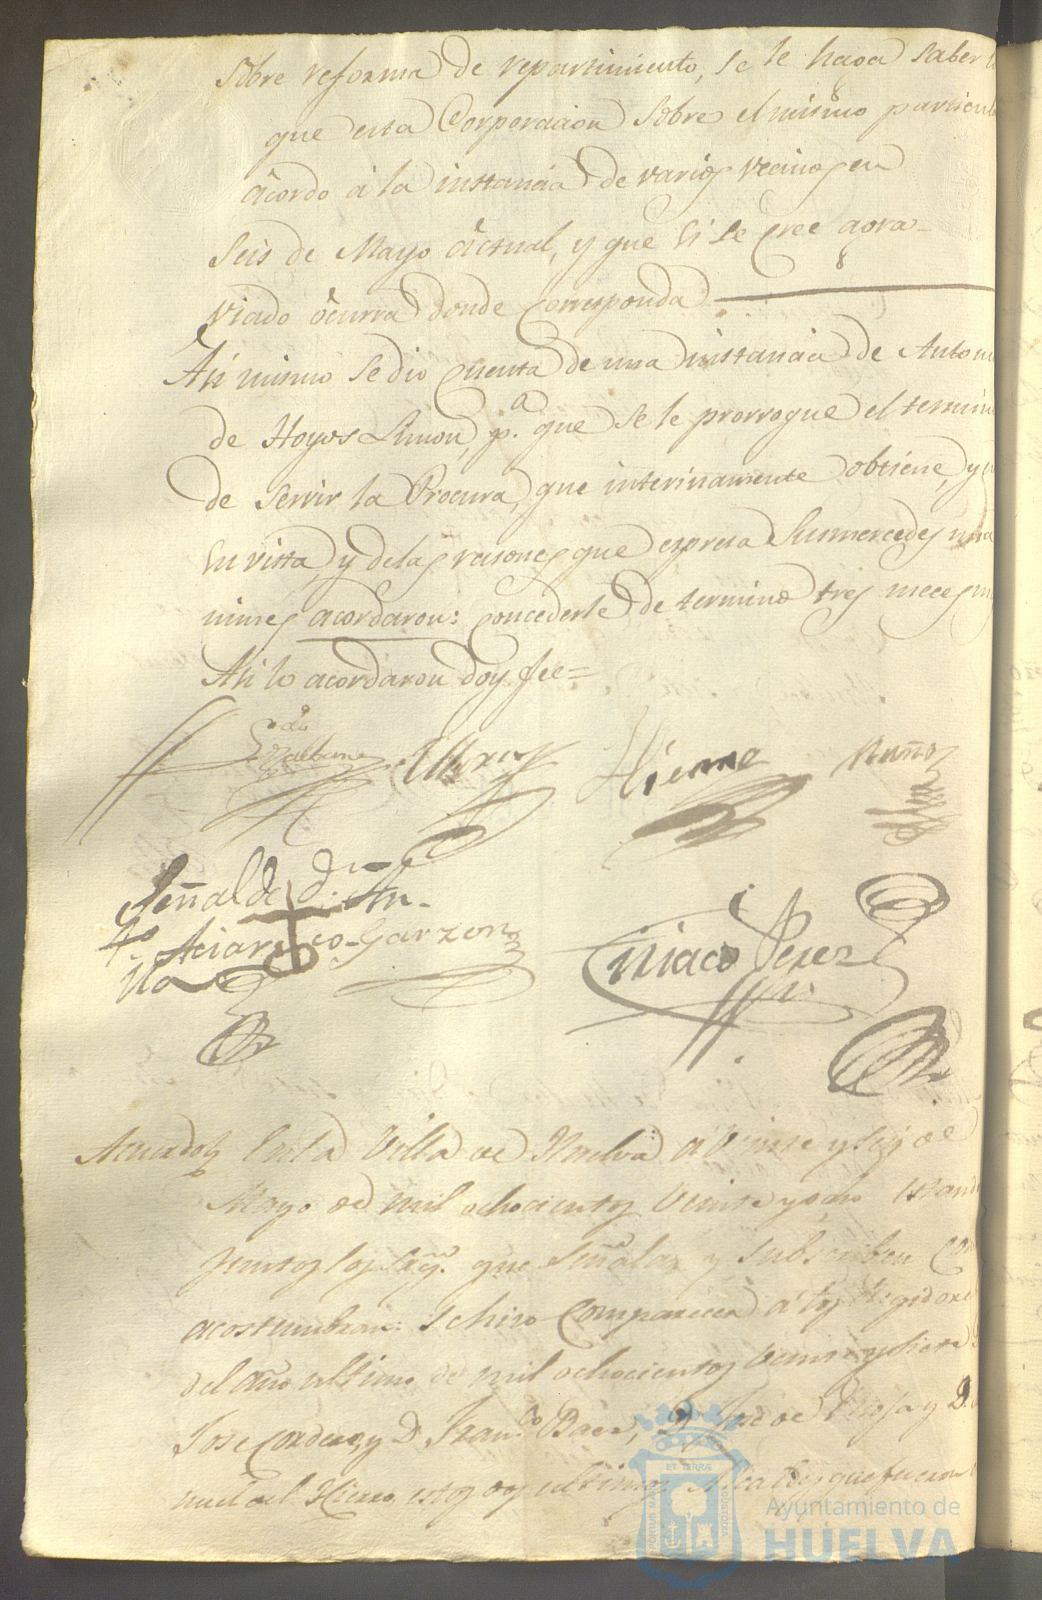 Sobre reforma de repartimiento, se le haga saber
que esta Corporacion Sobre el mismo particul
acordo â la instancia de varios vecinos en
Seis de Mayo actual, y que si se cree agra-
viado ôcurra donde corresponda
Asi mismo se dio cuenta de una instancia de Anton
de Hoyos Limon, p.a que se le prorrogue el termin
de servir la Procura, que interinamente obtiene, y
en vista, y de las rasones que expresa Susmercedes una
nimes acordaron: concederle de termino tres meces
Asi lo acordaron doy fee=
Hierro Muñoz
Señal de D.n An-
to Garzon
Ciriaco Perez
Acuerdo En la Villa de Huelva â Veinte y seis de
Mayo de mil ochocientos veinte y ocho estand
juntos los Sres. que Señalan y subscriben Co
acostumbran: se hizo comparecer â los Regidore
del año ultimo de mil ochocientos veinte y siete
Jose Cordero, y D. Fran.co Baez, y José de Rioja y D.
nuel del Hierro, estos dos ultimos Alcaldes que fueron
PORTUS MARIS ET TERRÆ CUSTODIA
Ayuntamiento de
HUELVA